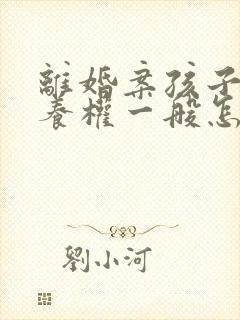 離婚案孩子
養權一般怎
劉小河